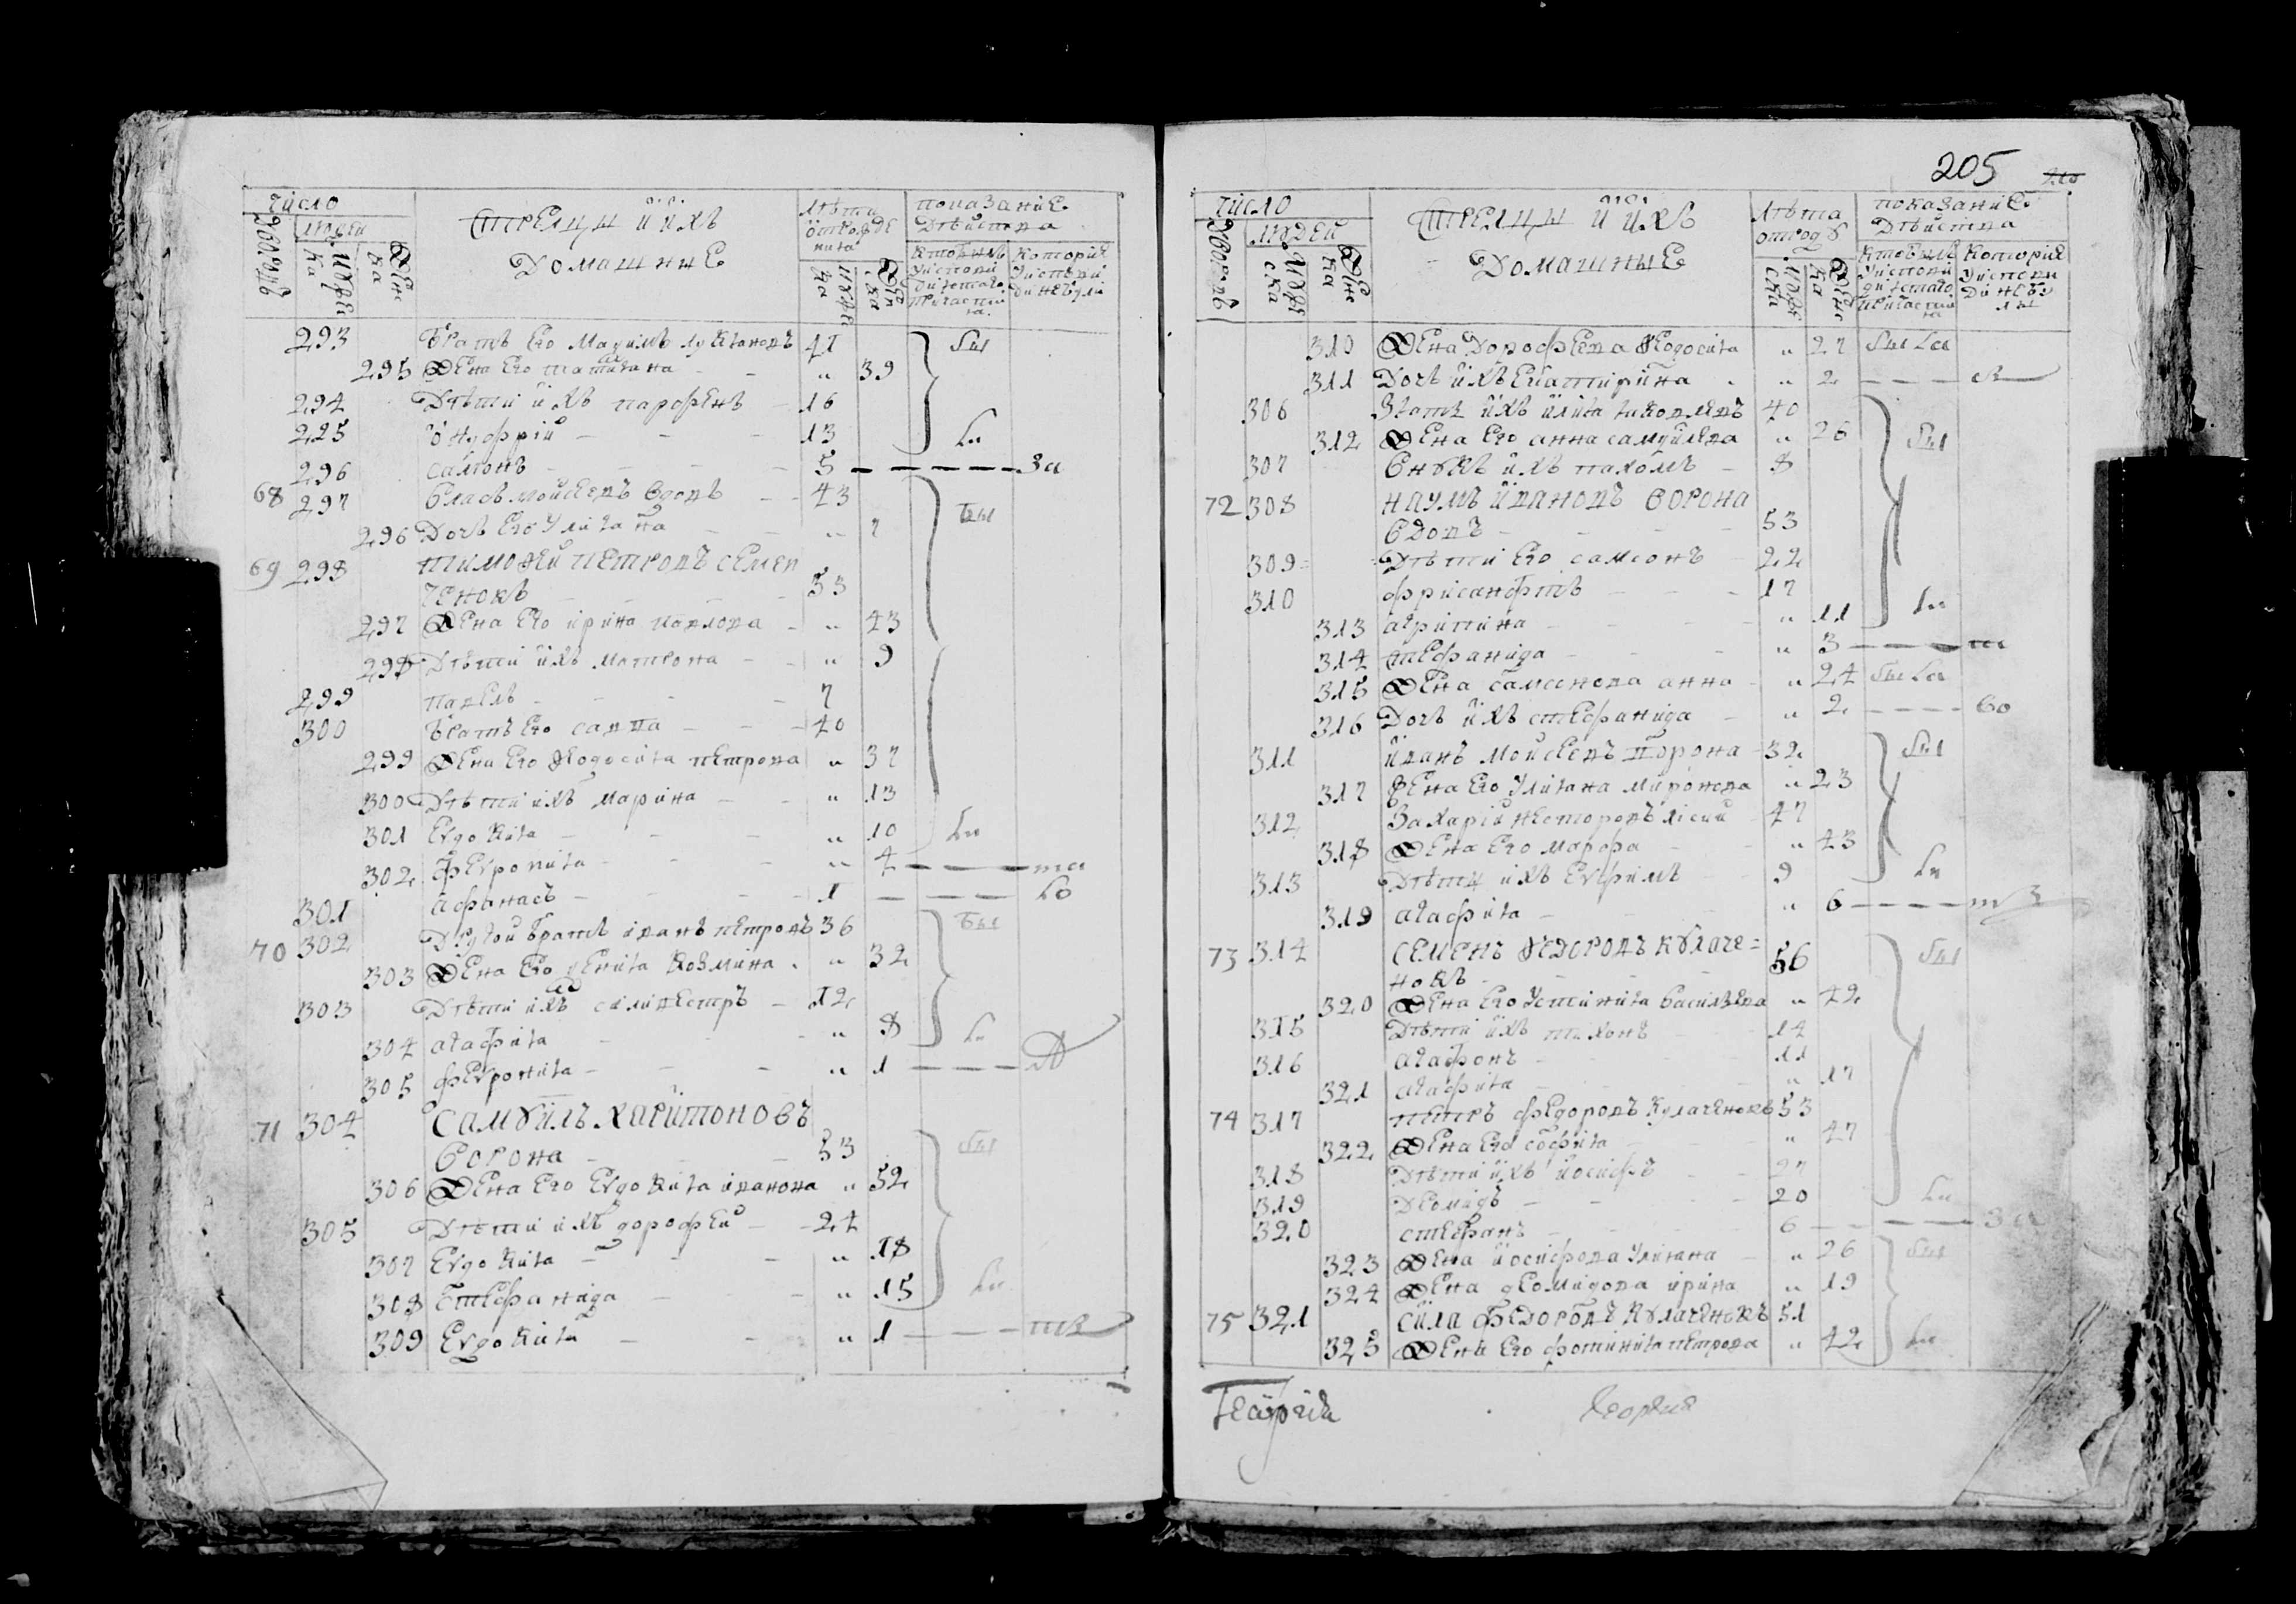 число
людей
Дворовъ
Мужеска
Женска
Стрелцы и ихъ
Домашние
Лѣта от рожде
ния
Мужеска
Женска
показание
Дѣйства
Кто былъ у исповеди и святаго причастия
Которые у исповеди не были
293 братъ его Маѯимъ лукяновъ 41 бы
295 Жена его татияна " 39
294 Дѣти ихъ парфенъ 16
225 онуфрий 13 ли
296 самонъ 5 за
68 297 власъ мойсеевъ вдовъ 43 бы
296 Дочь его Улияна " 7
69 298 тимоѳей петровъ семен
ченокъ 53
297 Жена его ирина павлова " 43
298 Дѣти ихъ матрона " 9
299 павелъ 7
300 братъ его савва 40
299 Жена его ѳедосия петрова " 37
300 Дѣти ихъ марина " 13
301 Евдокия " 10 ли
302 февронія " 4 ма
301 афанасъ 1 ло
70 302 другой братъ иванъ петровъ 36 бы
303 Жена его ксения козмина " 32
303 Дѣти ихъ силивестръ 12
304 агафия " 8 ли
305 феврония " 1
71 304 Самуилъ Харитоновъ
Ворона 53 бы
306 Жена его Евдокия иванова " 52
305 Дѣти ихъ дорофей 24
307 Евдокия " 18
308 Стефанида " 15 ли
309 Евдокия " 1
205
число
людей
Дворовъ
Мужеска
Женска
Стрелцы и ихъ
Домашние
Лѣта
от роду
Мужеска
Женска
показание
Дѣйства
Кто былъ у исповеди и святаго причастия
Которые у исповеди не были
310 Жена дорофеева ѳедосия " 27 были
311 Дочь ихъ екатирина " 2
306 Зять ихъ илия яковлевъ 40
312 Жена его анна самуйлева " 26 бы
307 Внукъ ихъ пахомъ 8
72 308 наумъ ивановъ ворона
вдовъ 53
309 Дѣти его самсонъ 22
310 фрисанфтъ 17
313 агрипина " 11 ли
314 стефанида " 3
315 Жена самсонова анна " 24 были
316 Дочь ихъ стефанида " 2 во
311 иванъ мойсеевъ ворона 32 бы
317 Жена его Улияна миронова " 23
312 Захарий несторовъ лисий 47
318 Жена его марфа " 43
313 Дѣти ихъ Евфимъ 9 ли
319 агафия " 6
73 314 семенъ ѳедоровъ кулаче=
нокъ 56 бы
320 Жена его Устиния василева " 42
315 Дѣти ихъ тихонъ 14
316 агафонъ 11
321 агафия " 17
74 317 петръ федоровъ кулаченокъ 53
322 Жена его софия " 47
318 Дѣти ихъ иосифъ 27
319 деомидъ 20 ли
320 стефанъ 6 за
323 Жена иосифова улияна " 26 бы
324 Жена деомидова ирина " 19
75 321 сила федоровъ кулаченокъ 51
325 Жена его фотиния петрова " 42 ли
Георгия